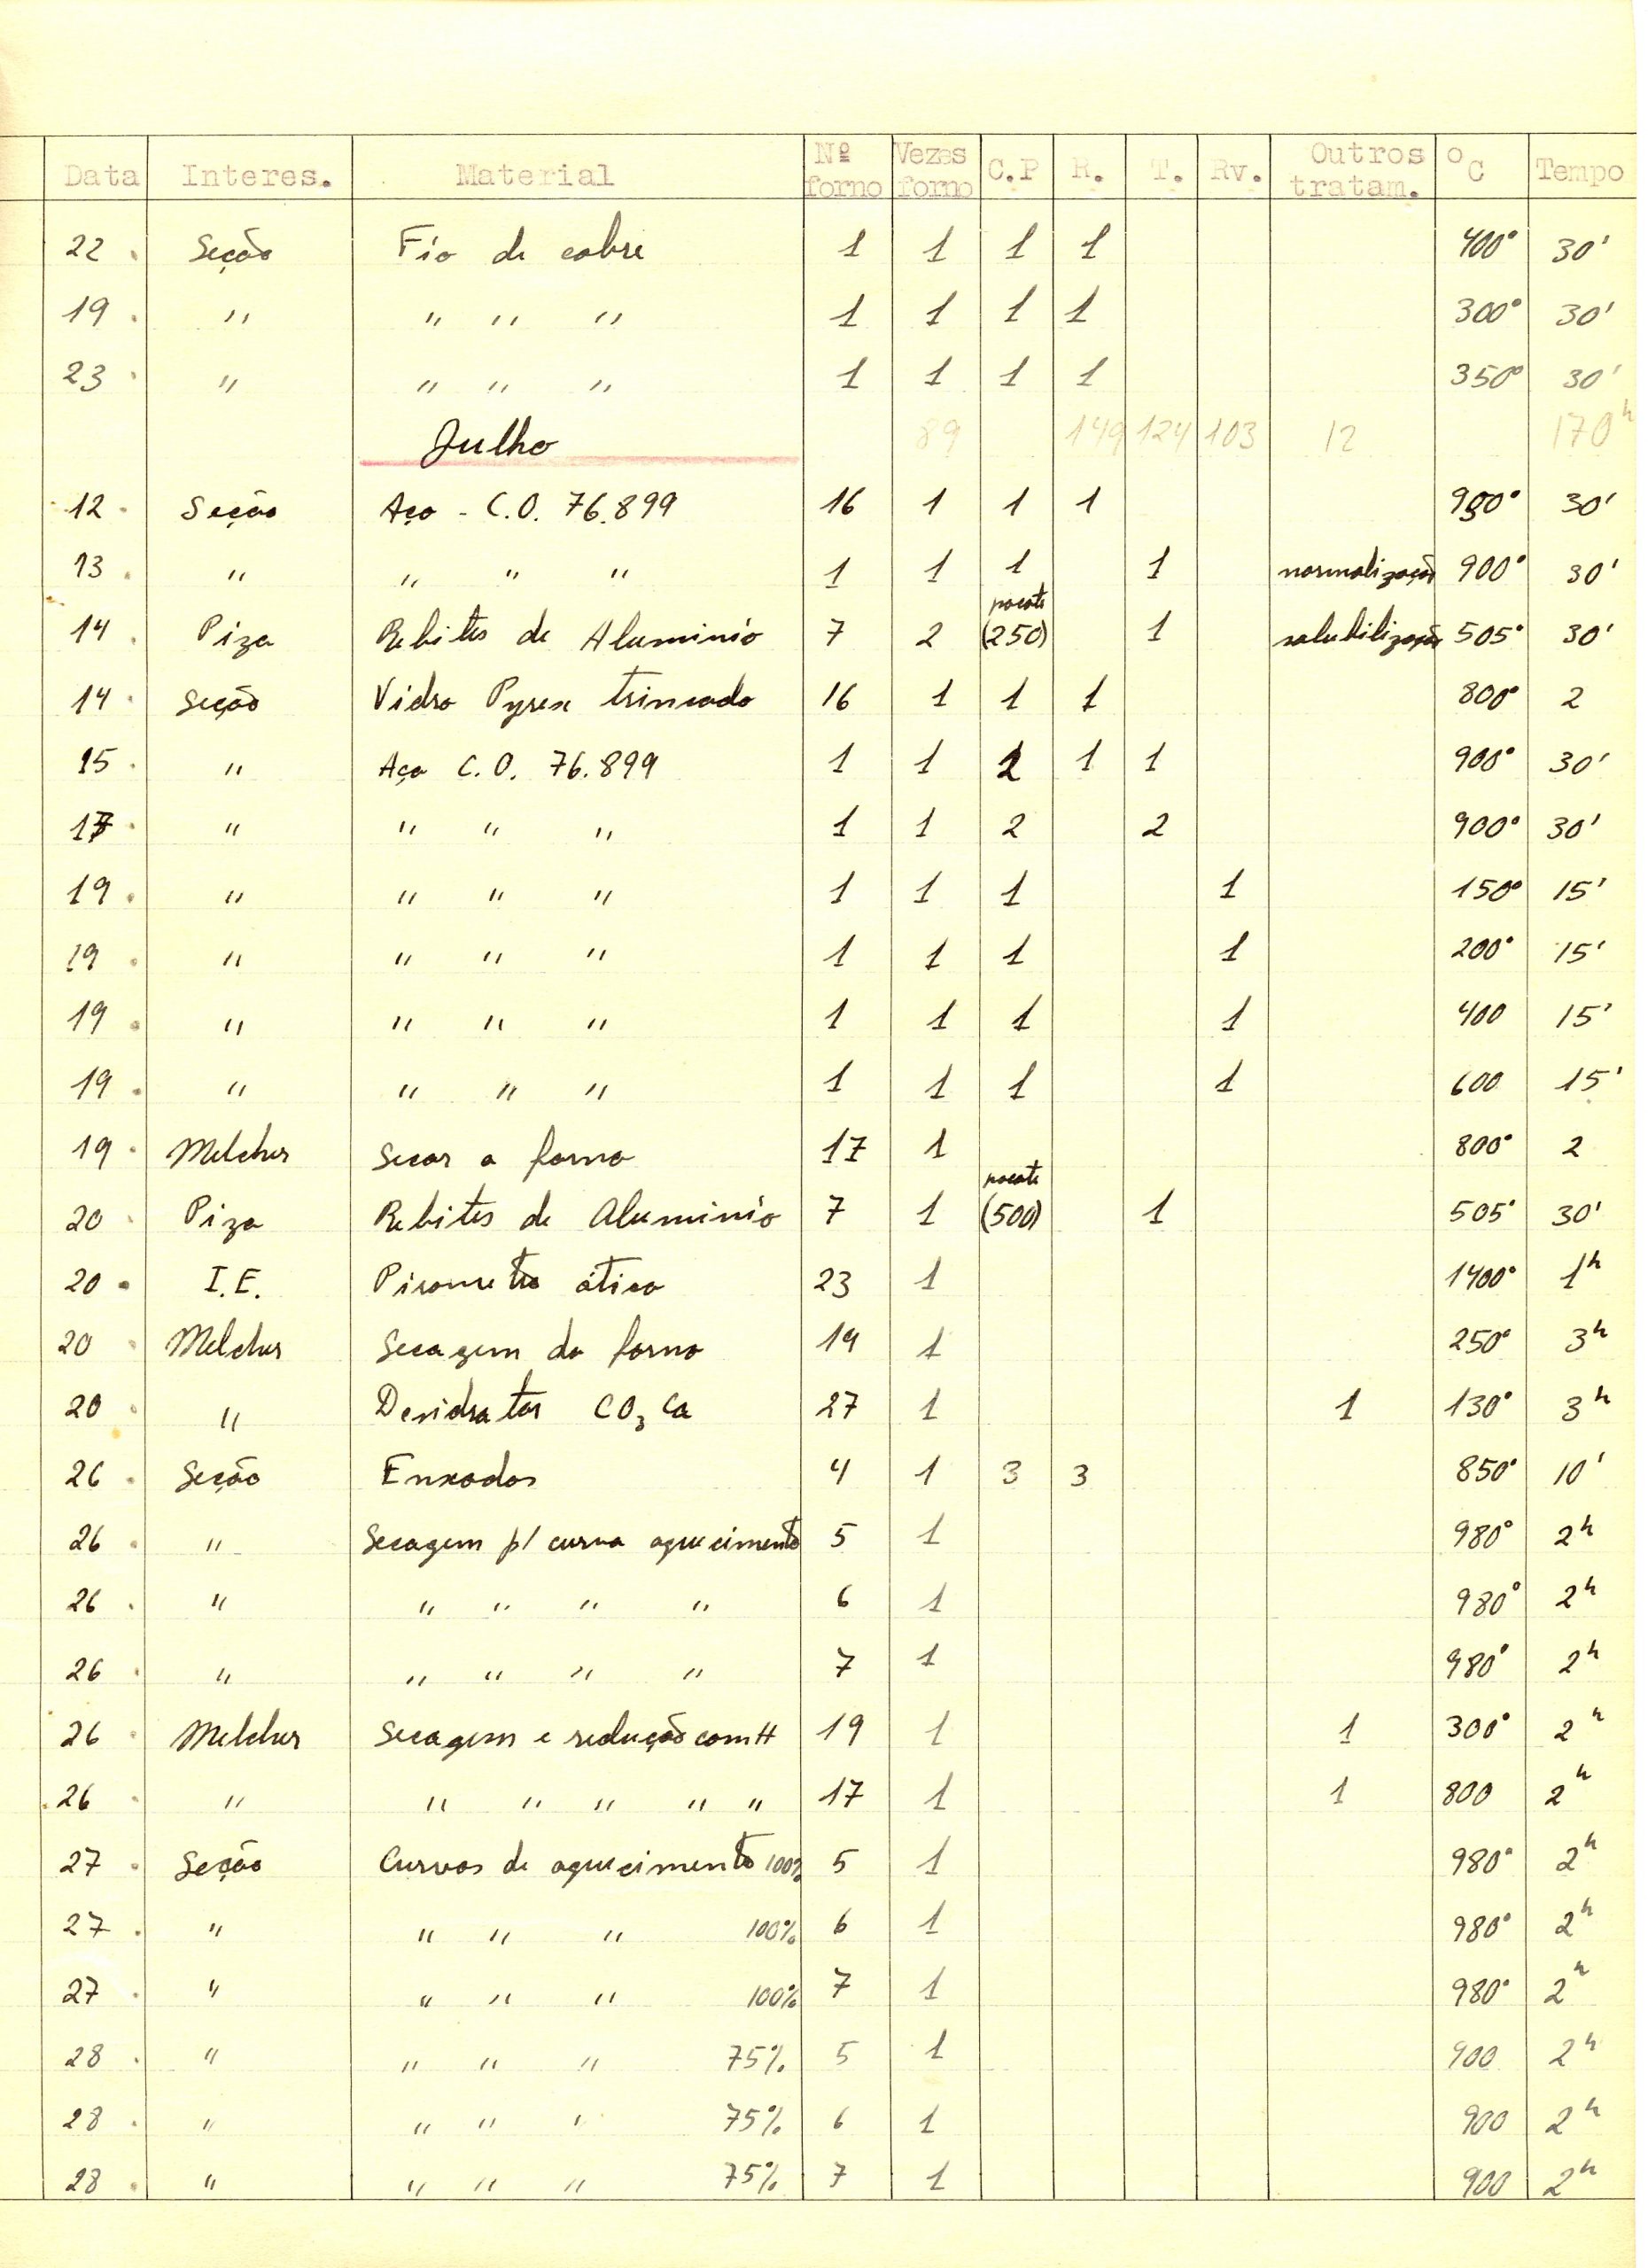 Data Interes. Material Nº forno Vezes forno C.P R. T. Rv. Outros tratam. ºC Tempo
22 Seção Fio de cobre 1 1 1 1 400° 30'
19 " " " " 1 1 1 1 300° 30'
23 " " " " 1 1 1 1 350° 30'
Julho 89 149 124 103 12 170h
12 Seção Aço - C.O. 76.899 16 1 1 1 30'
13 " " " " 1 1 1 1 normalização 900° 30'
14 Piza Rebites de Aluminio 7 2 pacote (250) 1 solubilização 505° 30'
14 Seção Vidro Pyrex trincado 16 1 1 1 800° 2
15 " Aço C.O. 76.899 1 1 2 1 1 900° 30'
17 " " " " 1 1 2 2 900° 30'
19 " " " " 1 1 1 1 150° 15'
19 " " " " 1 1 1 1 200° 15'
19 " " " " 1 1 1 1 400 15'
19 " " " " 1 1 1 1 600 15'
19 Melcher Secar o forno 17 1 800° 2
20 Piza Rebites de Aluminio 7 1 pacote (500) 1 505° 30'
20 I.E. Pirometro ótico 23 1 1400° 1h
20 Melcher Secagem do forno 19 1 250° 3h
20 " Desidratar CO3 Ca 27 1 1 130° 3h
26 Seção Enxadas 4 1 3 3 850° 10'
26 " Secagem p/ curva aquecimento 5 1 980° 2h
26 " " " " " 6 1 980° 2h
26 " " " " " 7 1 980° 2h
26 Melcher Secagem e redução com H 19 1 1 300° 2h
26 " " " " " " 17 1 1 800 2h
27 Seção Curvas de aquecimento 100% 5 1 980° 2h
27 " " " " 100% 6 1 980° 2h
27 " " " " 100% 7 1 980° 2h
28 " " " " 75% 5 1 900 2h
28 " " " " 75% 6 1 900 2h
28 " " " " 75% 7 1 900 2h